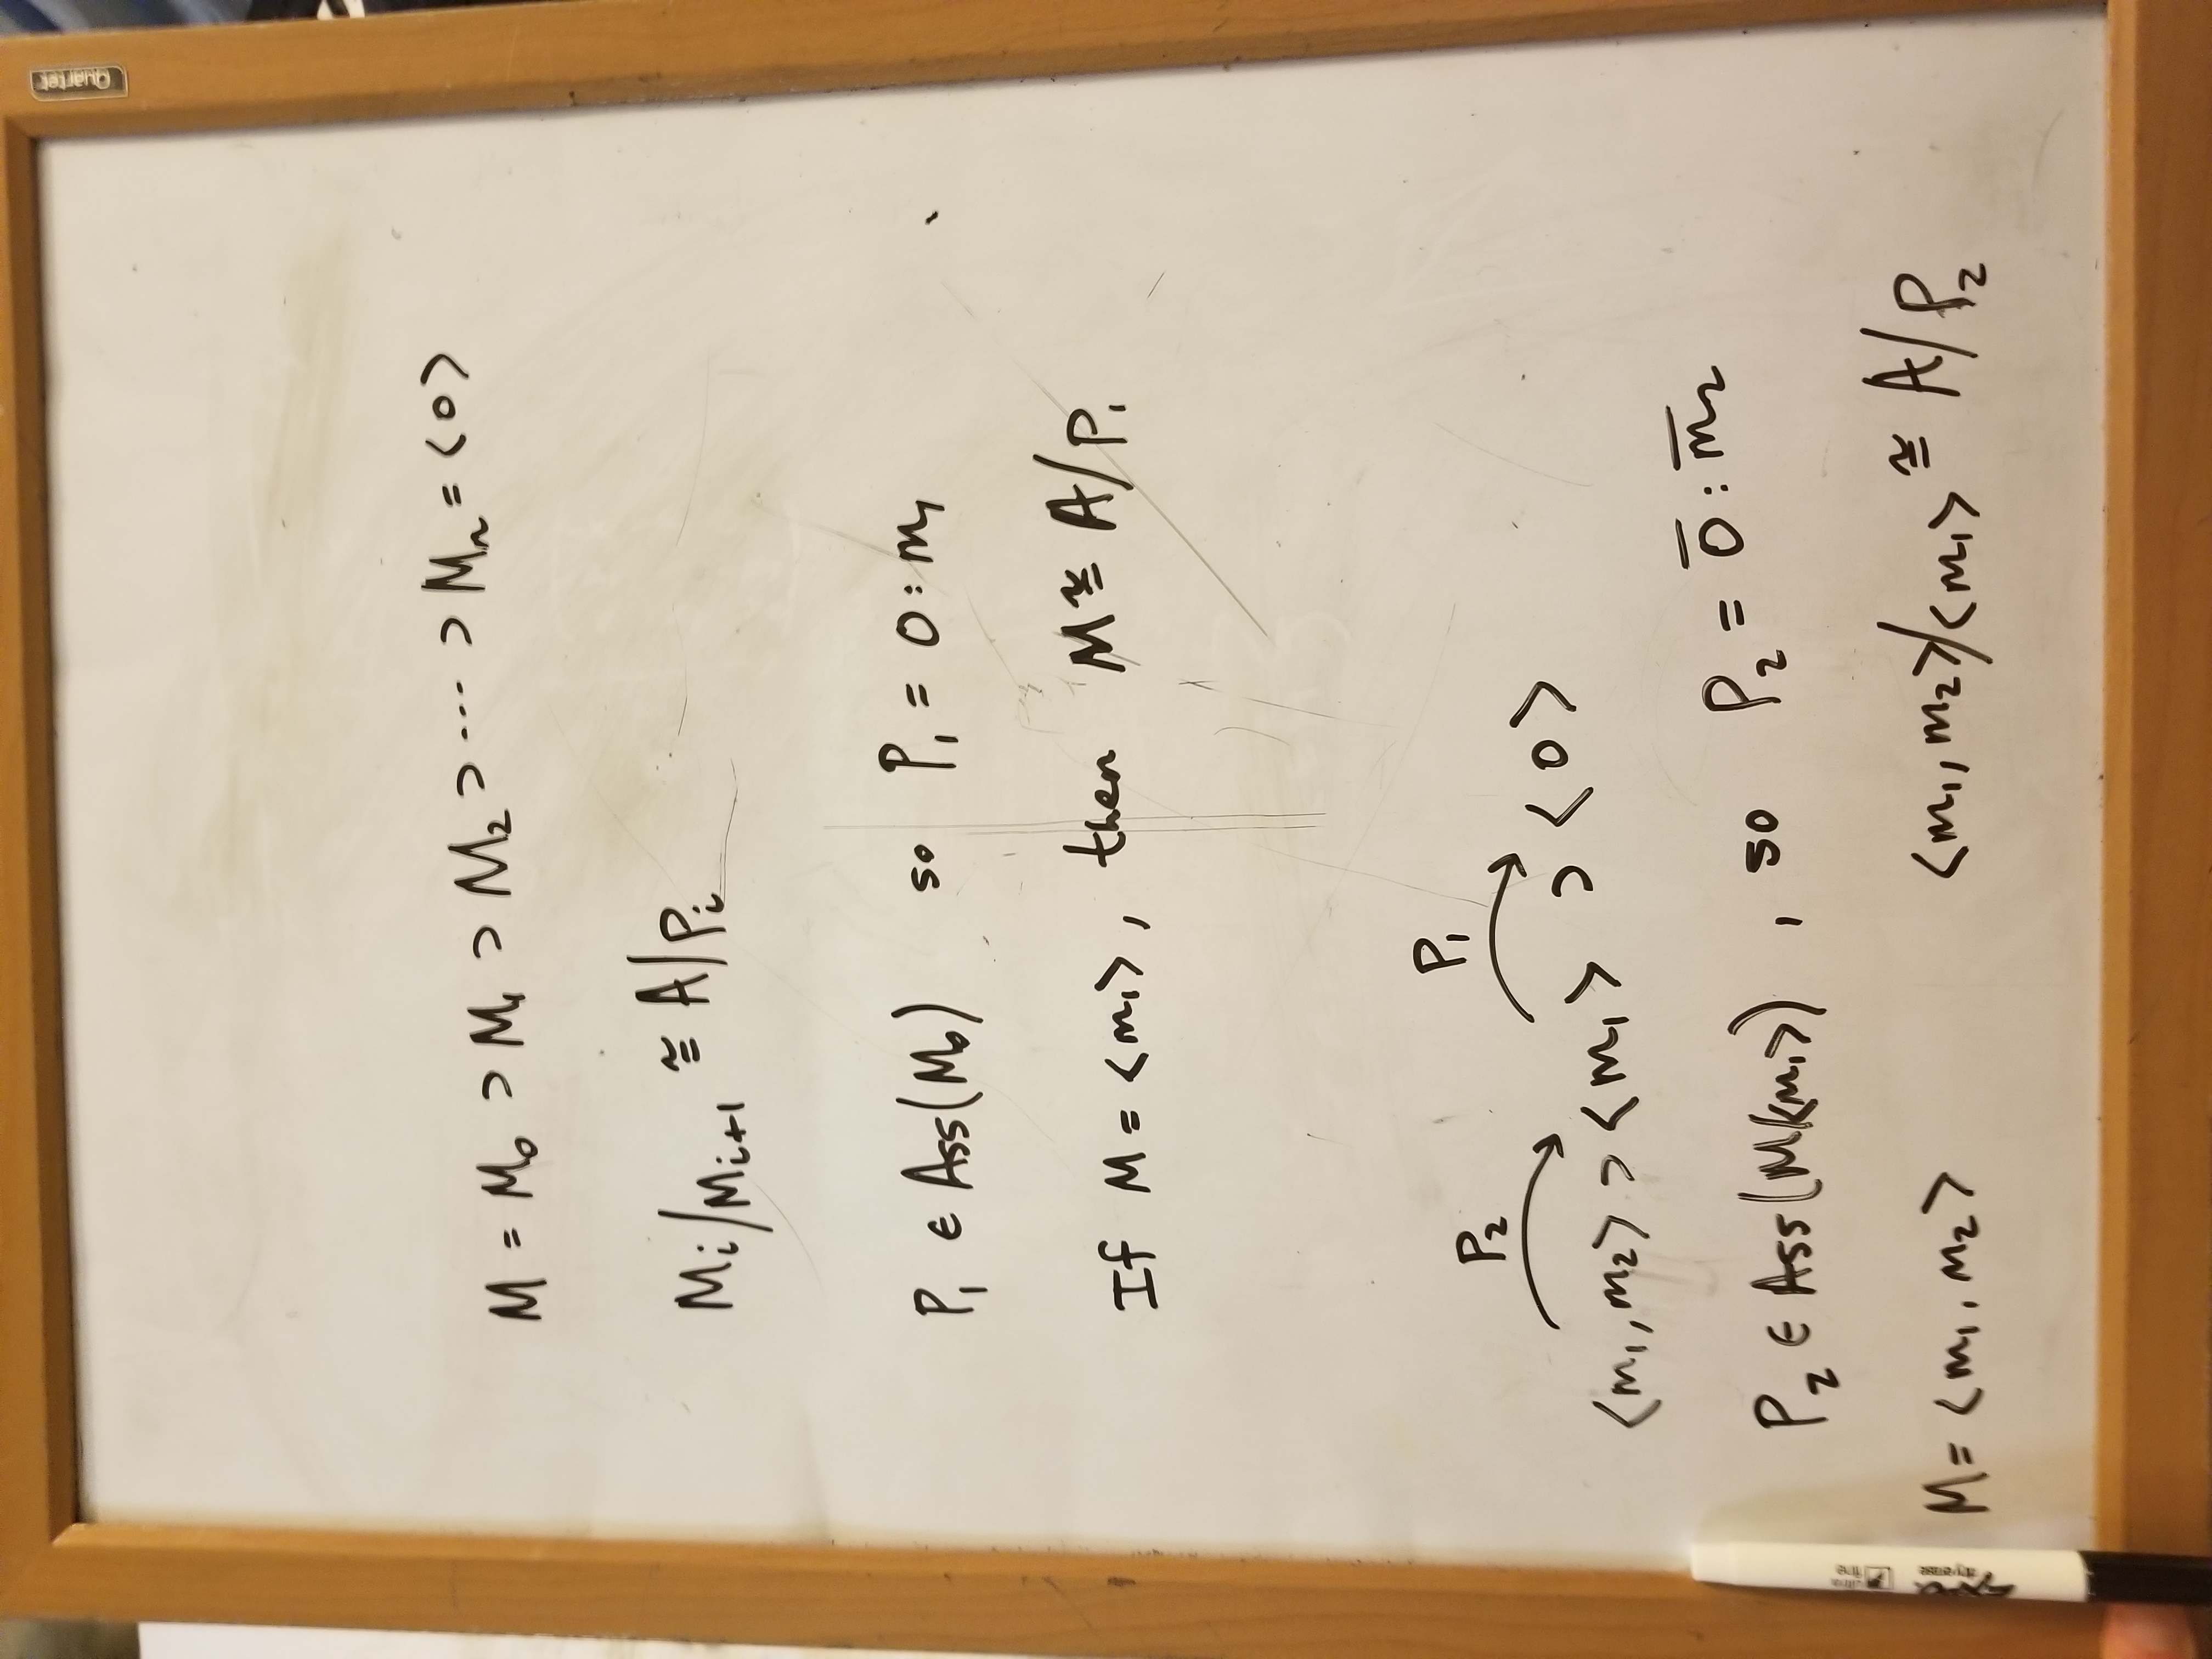 Quartet
M = M₀ ⊃ M₁ ⊃ M₂ ⊃ ⋯ ⊃ Mₙ = ⟨0⟩
Mᵢ/Mᵢ₊₁ ≅ A/Pᵢ
P₁ ∈ Ass(M₀) so P₁ = 0 : m₁
If M = ⟨m₁⟩, then M ≅ A/P₁
P₂ P₁
⟨m₁, m₂⟩ ⊃ ⟨m₁⟩ ⊃ ⟨0⟩
P₂ ∈ Ass(M/⟨m₁⟩), so P₂ = 0̅ : m̅₂
M = ⟨m₁, m₂⟩ ⟨m₁, m₂⟩/⟨m₁⟩ ≅ A/P₂
EXPO